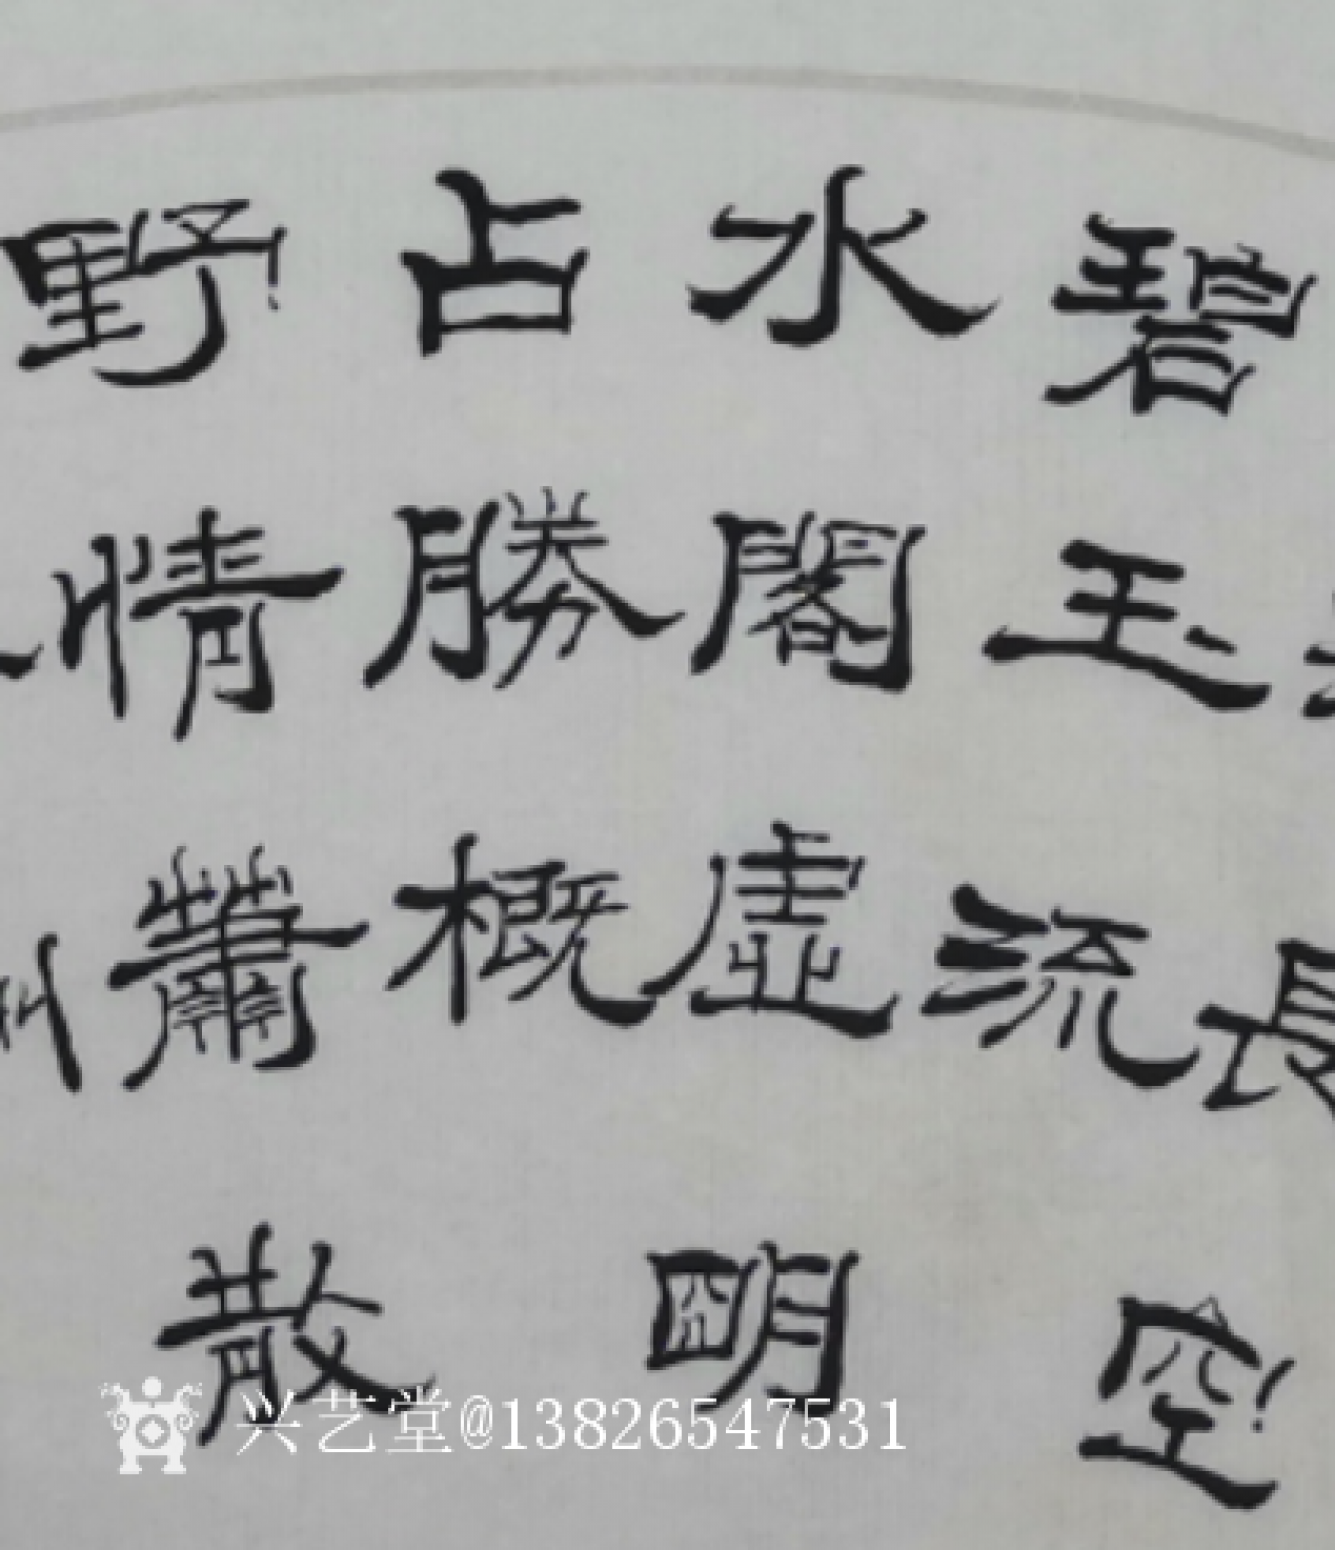 碧玉長空
水閣虛明
占勝概
野情蕭散
流
兴艺堂@13826547531